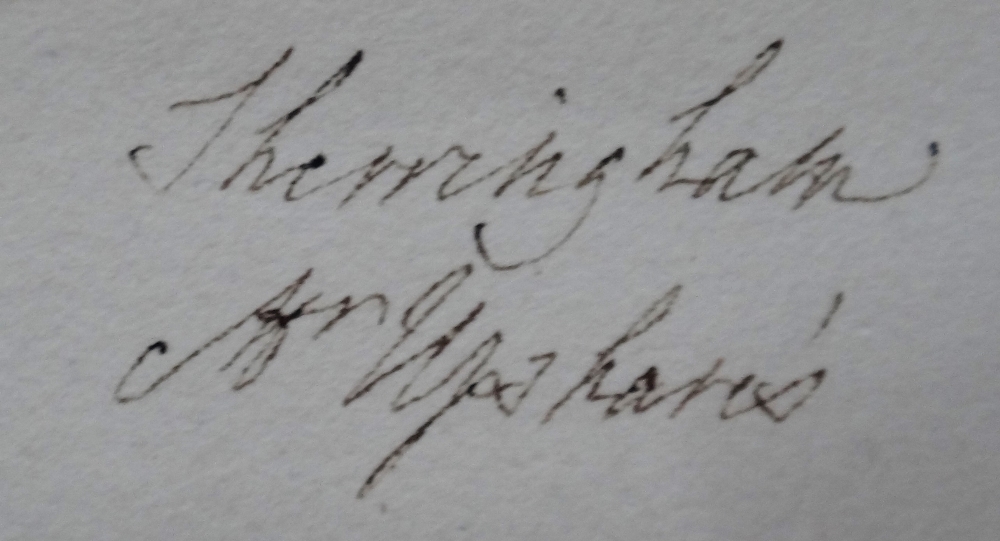 Sherringham
Mr Upshare's